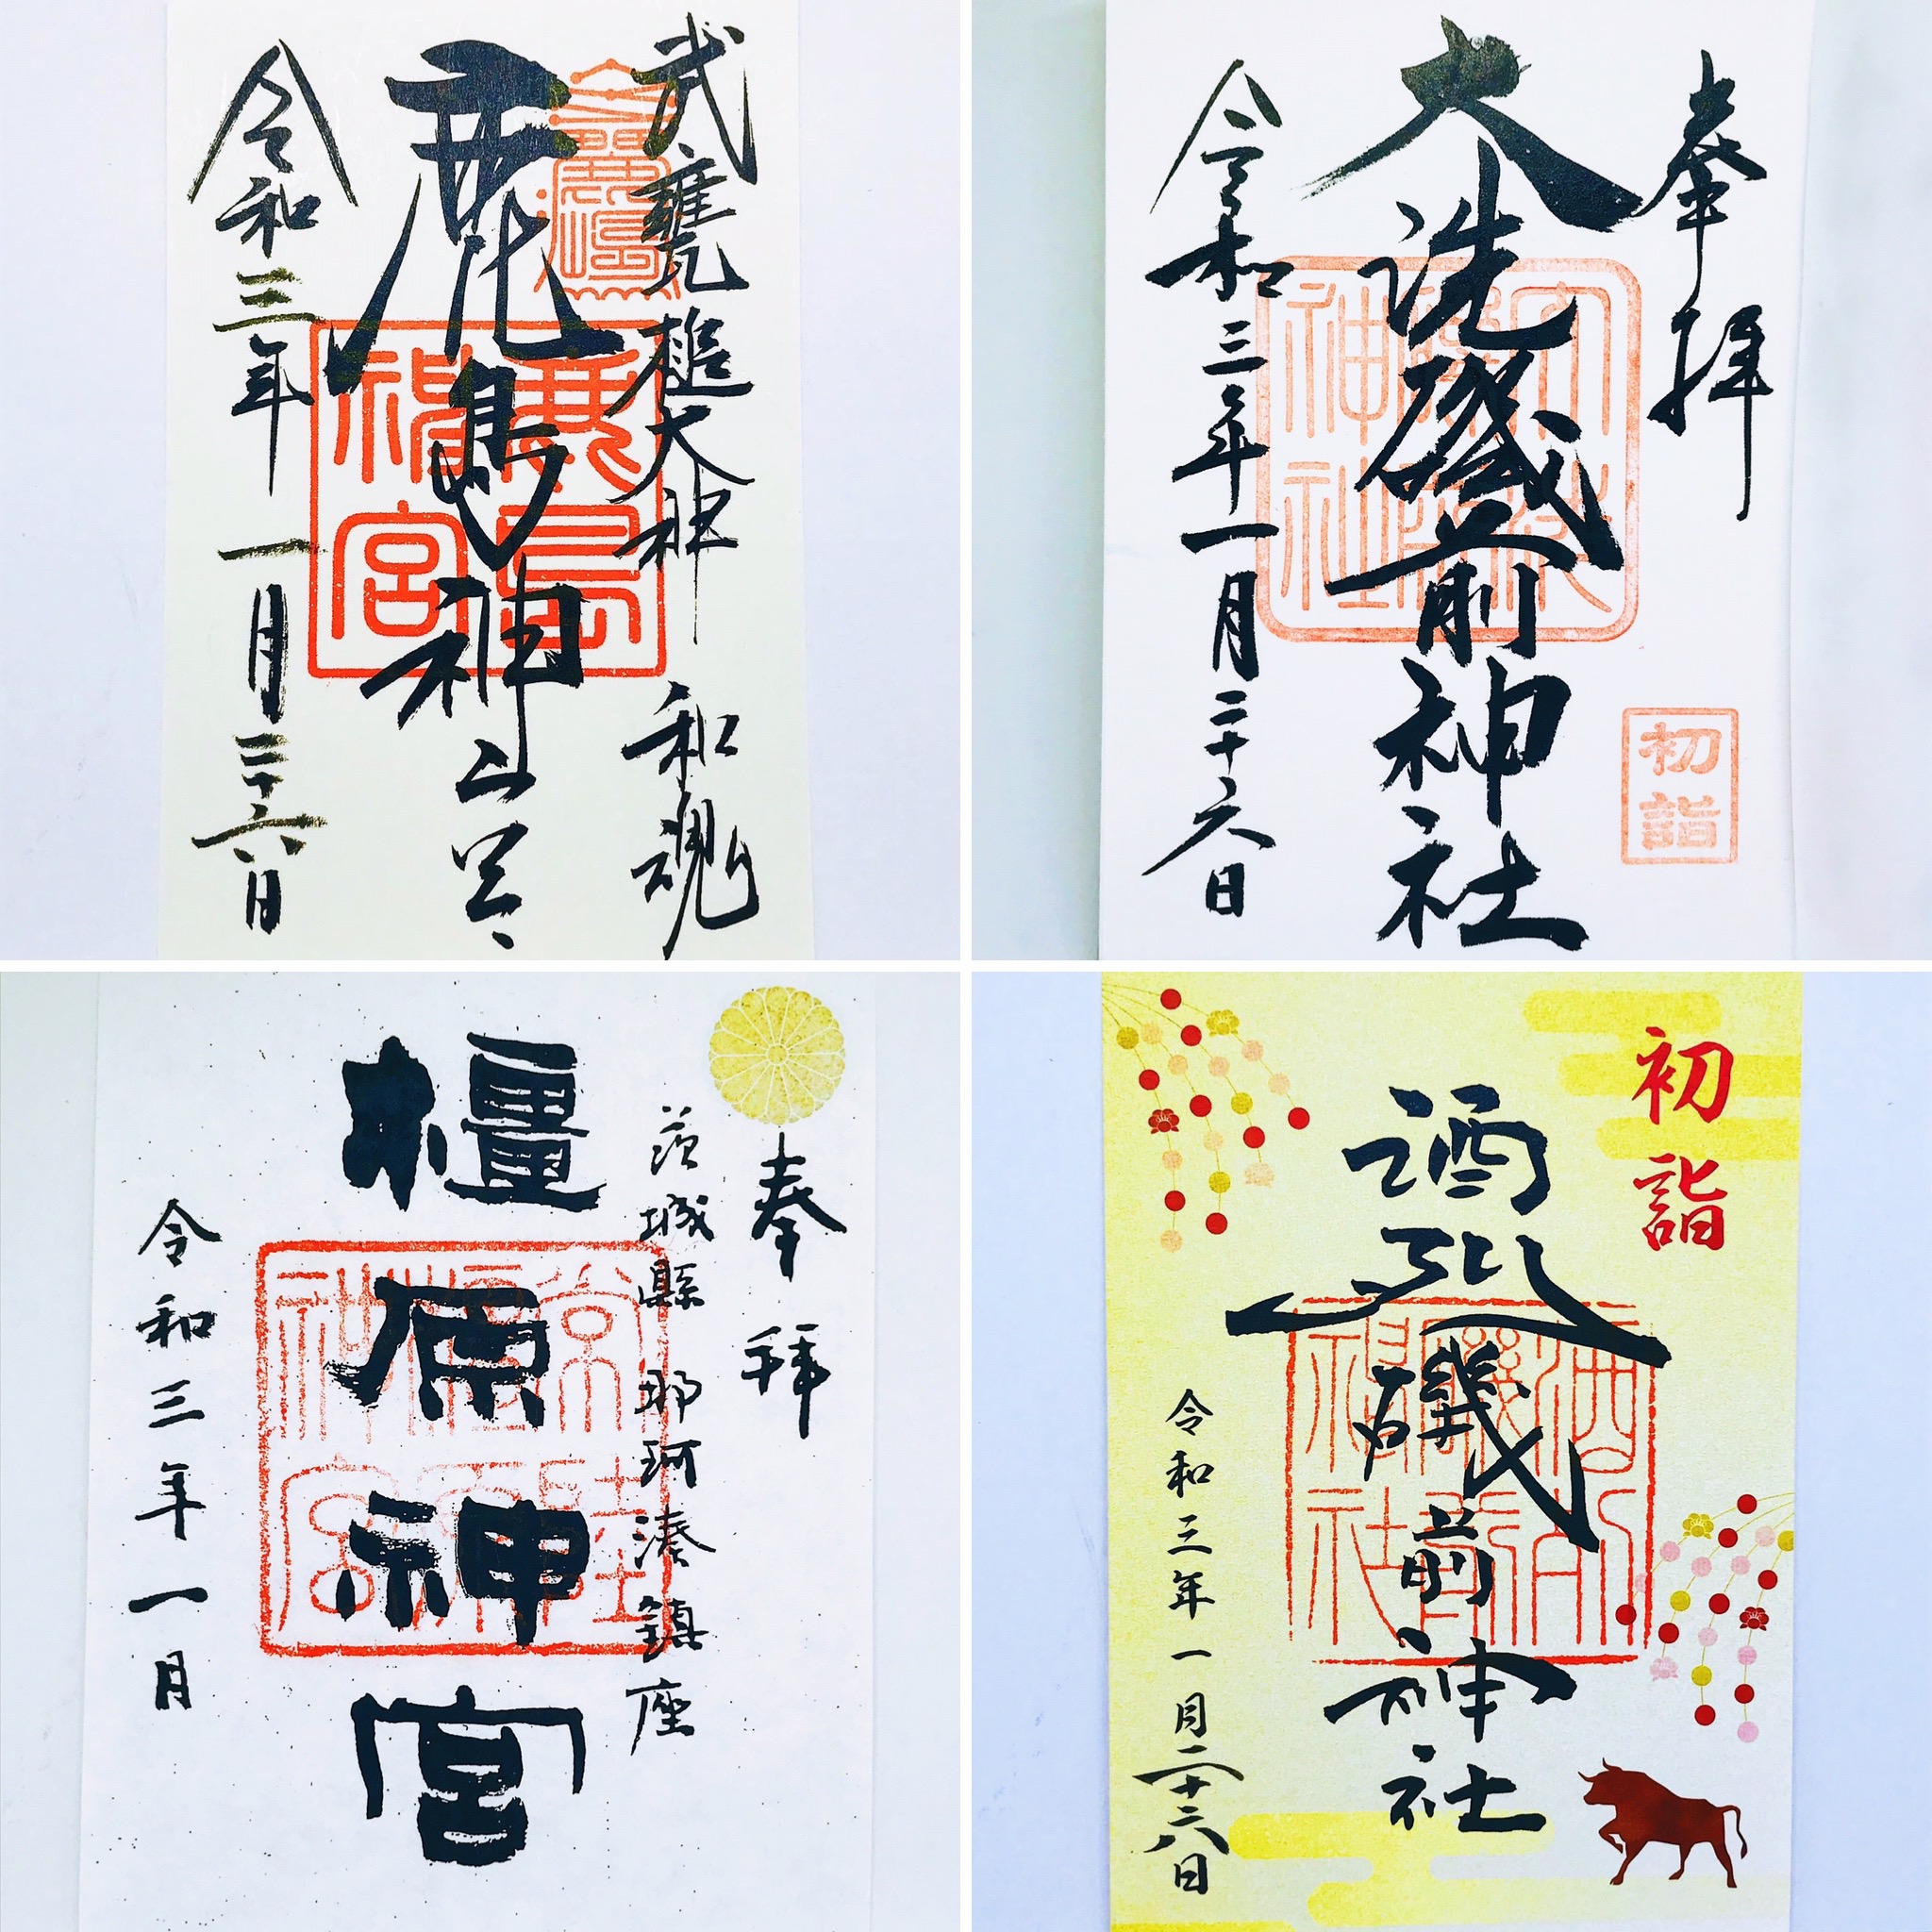 武甕槌大神 和魂
鹿島神宮
鹿島
神宮
令和三年 一月二十六日
奉拝
初詣
大洗磯前神社
令和三年一月二十六日
奉拝
茨城縣 那珂湊鎮座
橿原神宮
常陸
橿原
神宮
令和三年一月
初詣
酒列磯前神社
酒列
磯前
神社
令和三年一月二十六日